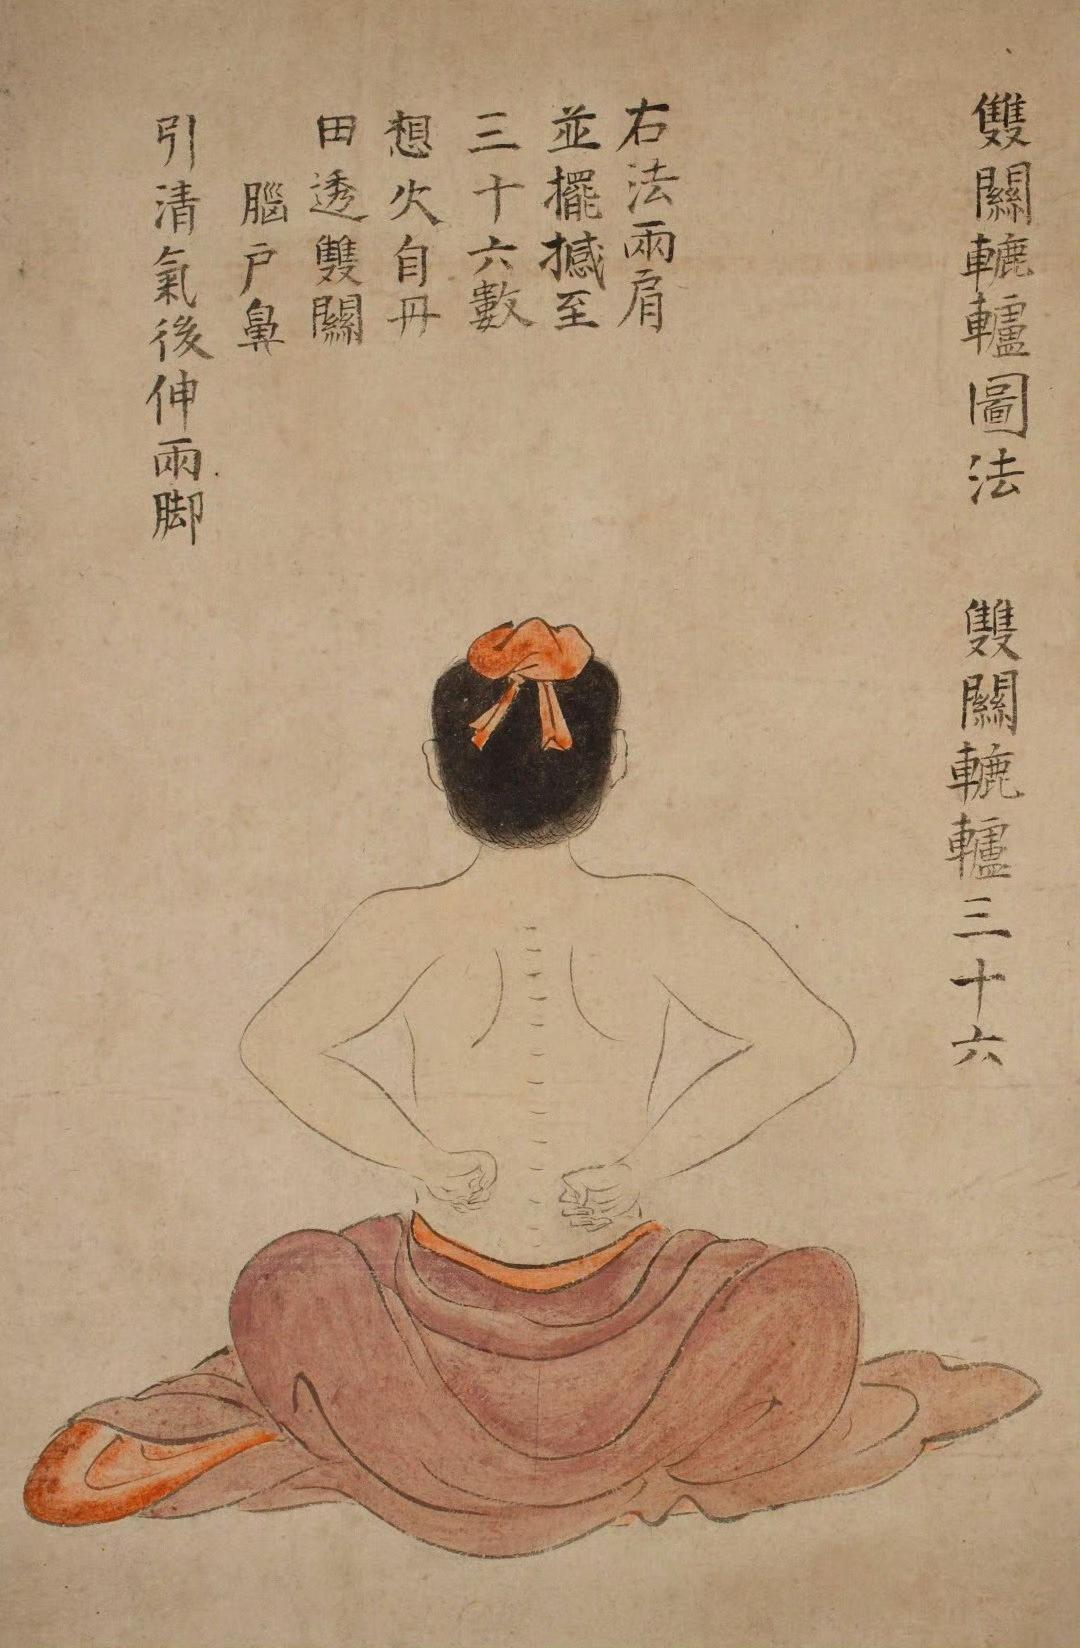 雙關轆轤圖法　雙關轆轤三十六
右法兩肩
並擺撼至
三十六數
想火自丹
田透雙關
腦户鼻
引清氣後伸兩脚